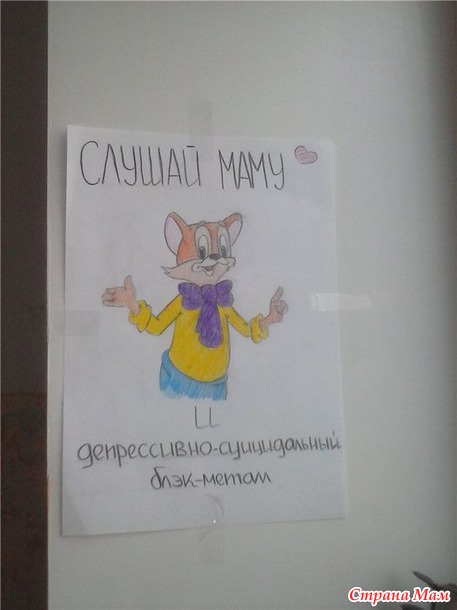 СЛУШАЙ МАМУ
И
депрессивно-суицидальный
блэк-метал
Страна Мам